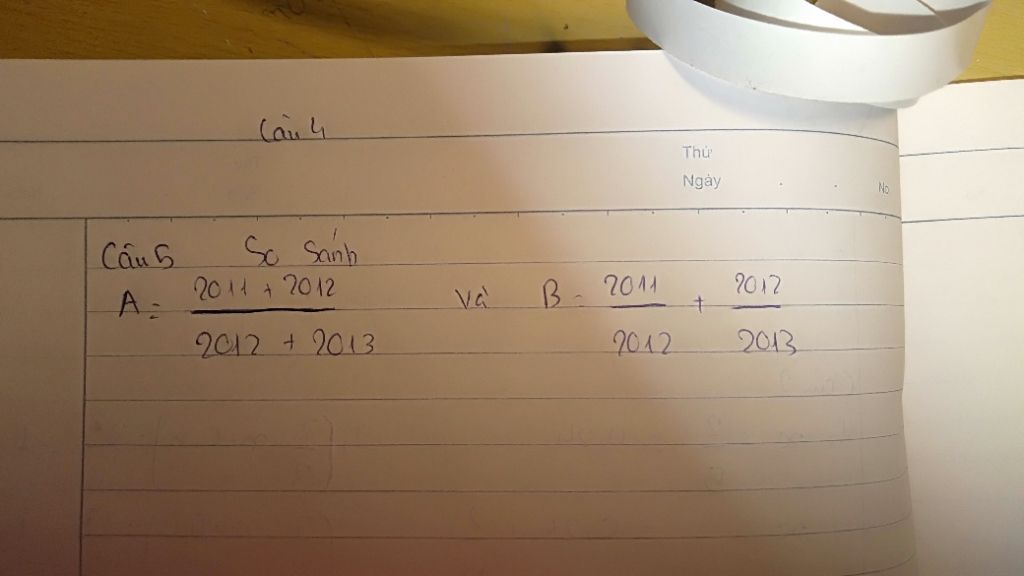 Câu 4
Thứ
Ngày No
Câu 5 So Sánh
A = 2011 + 2012 / 2012 + 2013 Và B = 2011 / 2012 + 2012 / 2013